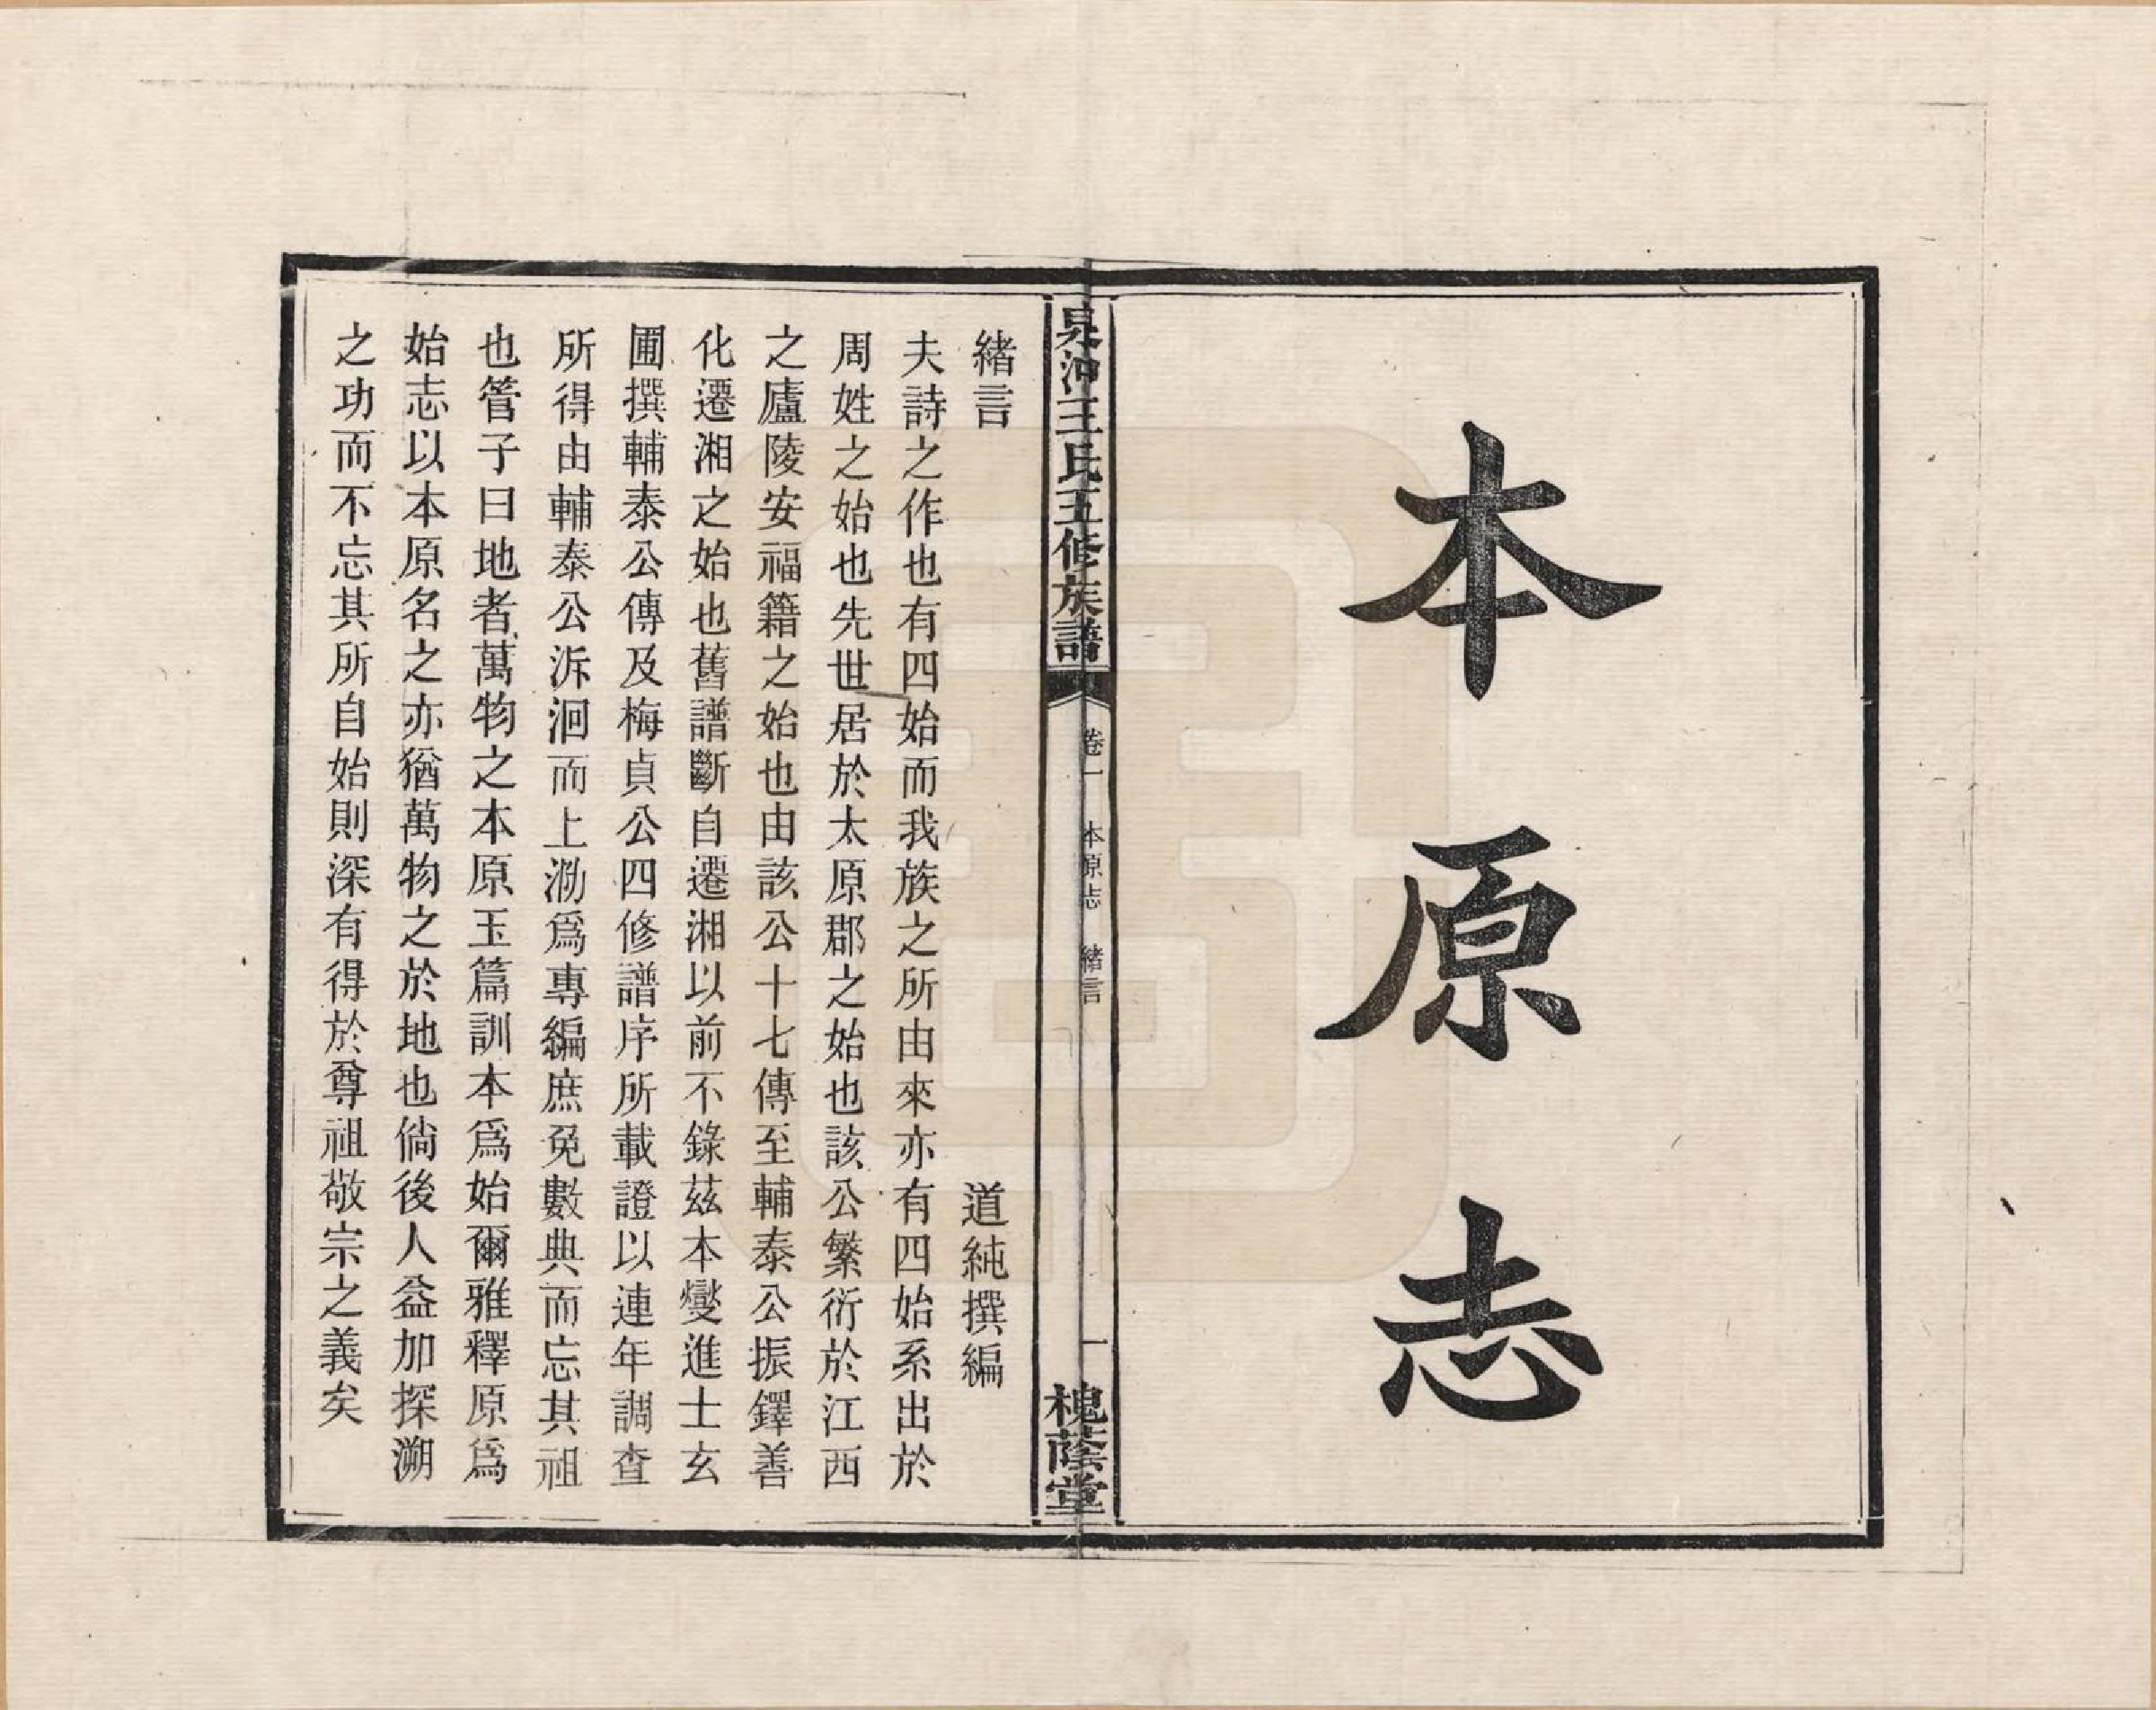 本原志
吳沖王氏五修族譜
卷一 本原志 緒言
一
槐蔭堂
緒言 道純撰編
夫詩之作也有四始而我族之所由來亦有四始系出於
周姓之始也先世居於太原郡之始也該公繁衍於江西
之廬陵安福籍之始也由該公十七傳至輔泰公振鐸善
化遷湘之始也舊譜斷自遷湘以前不錄茲本燮進士玄
圃撰輔泰公傳及梅貞公四修譜序所載證以連年調查
所得由輔泰公泝洄而上泐爲專編庶免數典而忘其祖
也管子曰地者萬物之本原玉篇訓本爲始爾雅釋原爲
始志以本原名之亦猶萬物之於地也倘後人益加探溯
之功而不忘其所自始則深有得於尊祖敬宗之義矣